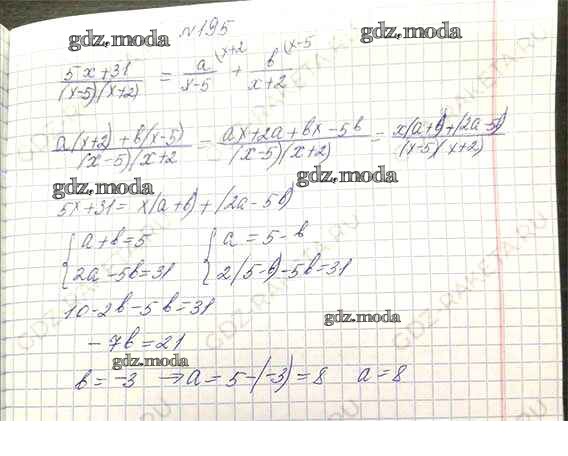 №195
gdz.moda
gdz.moda
(5x+31)/((x-5)(x+2)) = a/(x-5) (x+2 + b/(x+2) (x-5
(a(x+2)+b(x-5))/((x-5)(x+2) = (ax+2a+bx-5b)/((x-5)(x+2)) = (x(a+b)+(2a-5b))/((x-5)(x+2))
gdz.moda
gdz.moda
5x+31= x(a+b)+(2a-5b)
{ a+b=5 { a=5-b
{ 2a-5b=31 { 2(5-b)-5b=31
10-2b-5b=31
gdz.moda
-7b=21
gdz.moda
b=-3 ⇒ a=5-(-3)=8 a=8
GDZ-RAKETA.RU